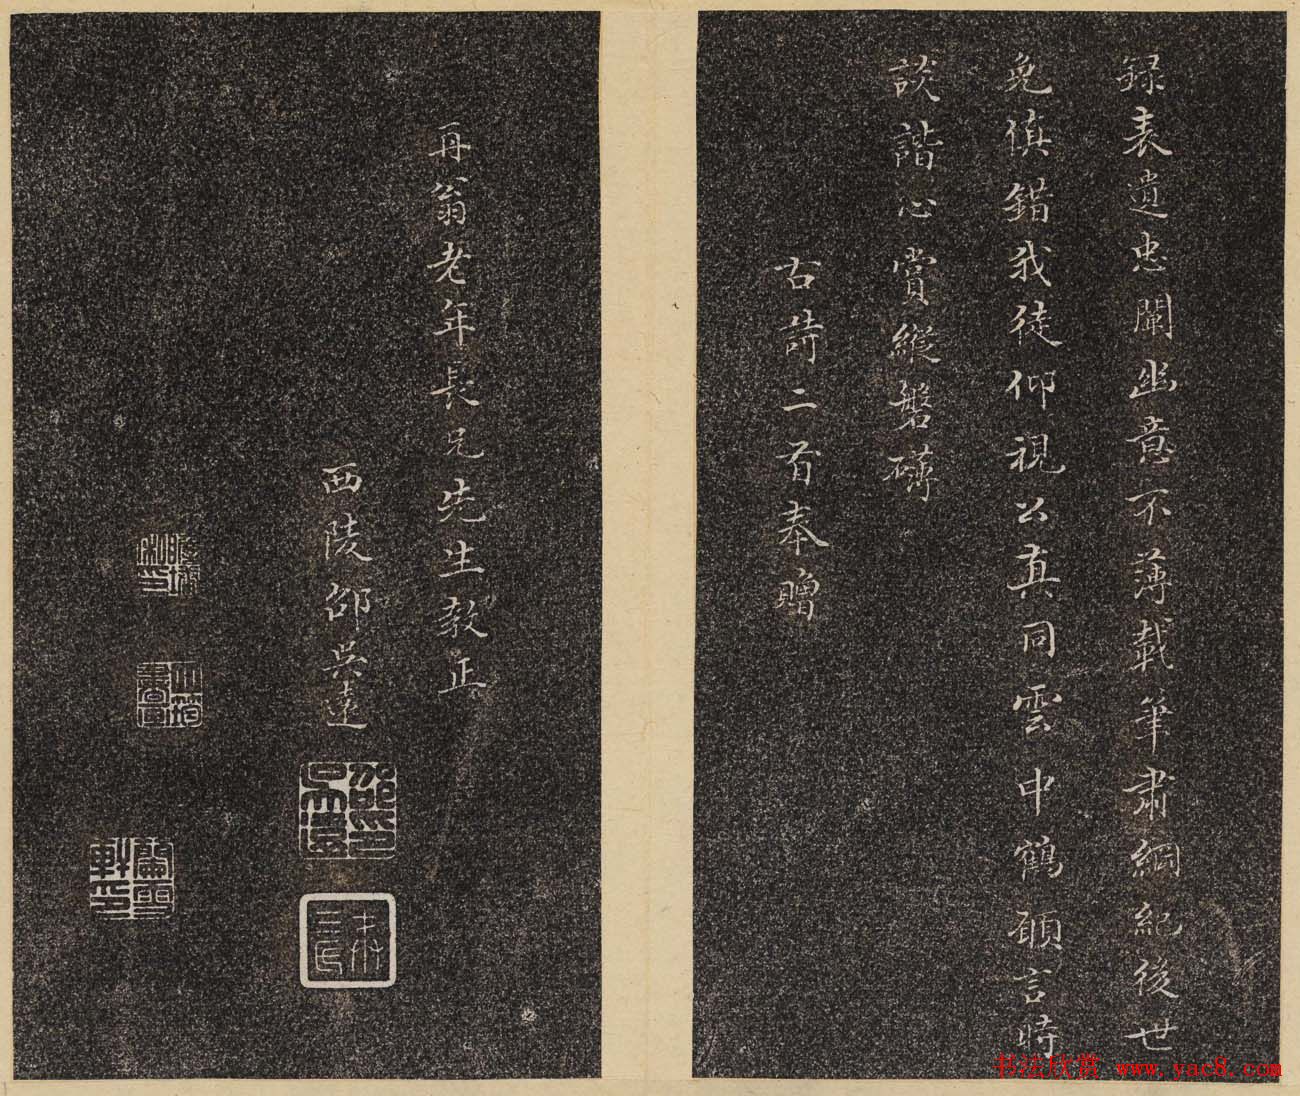 録表遺忠闡幽意不薄載筆肅綱紀後世
免傎錯我徒仰視公真同雲中鶴願言時
談諧心賞縱磐礴
古詩二首奉贈
再翁老年長兄先生教正
西陵邵吳遠
邵吳遠印
蘭雪軒印
书法欣赏 www.yac8.com